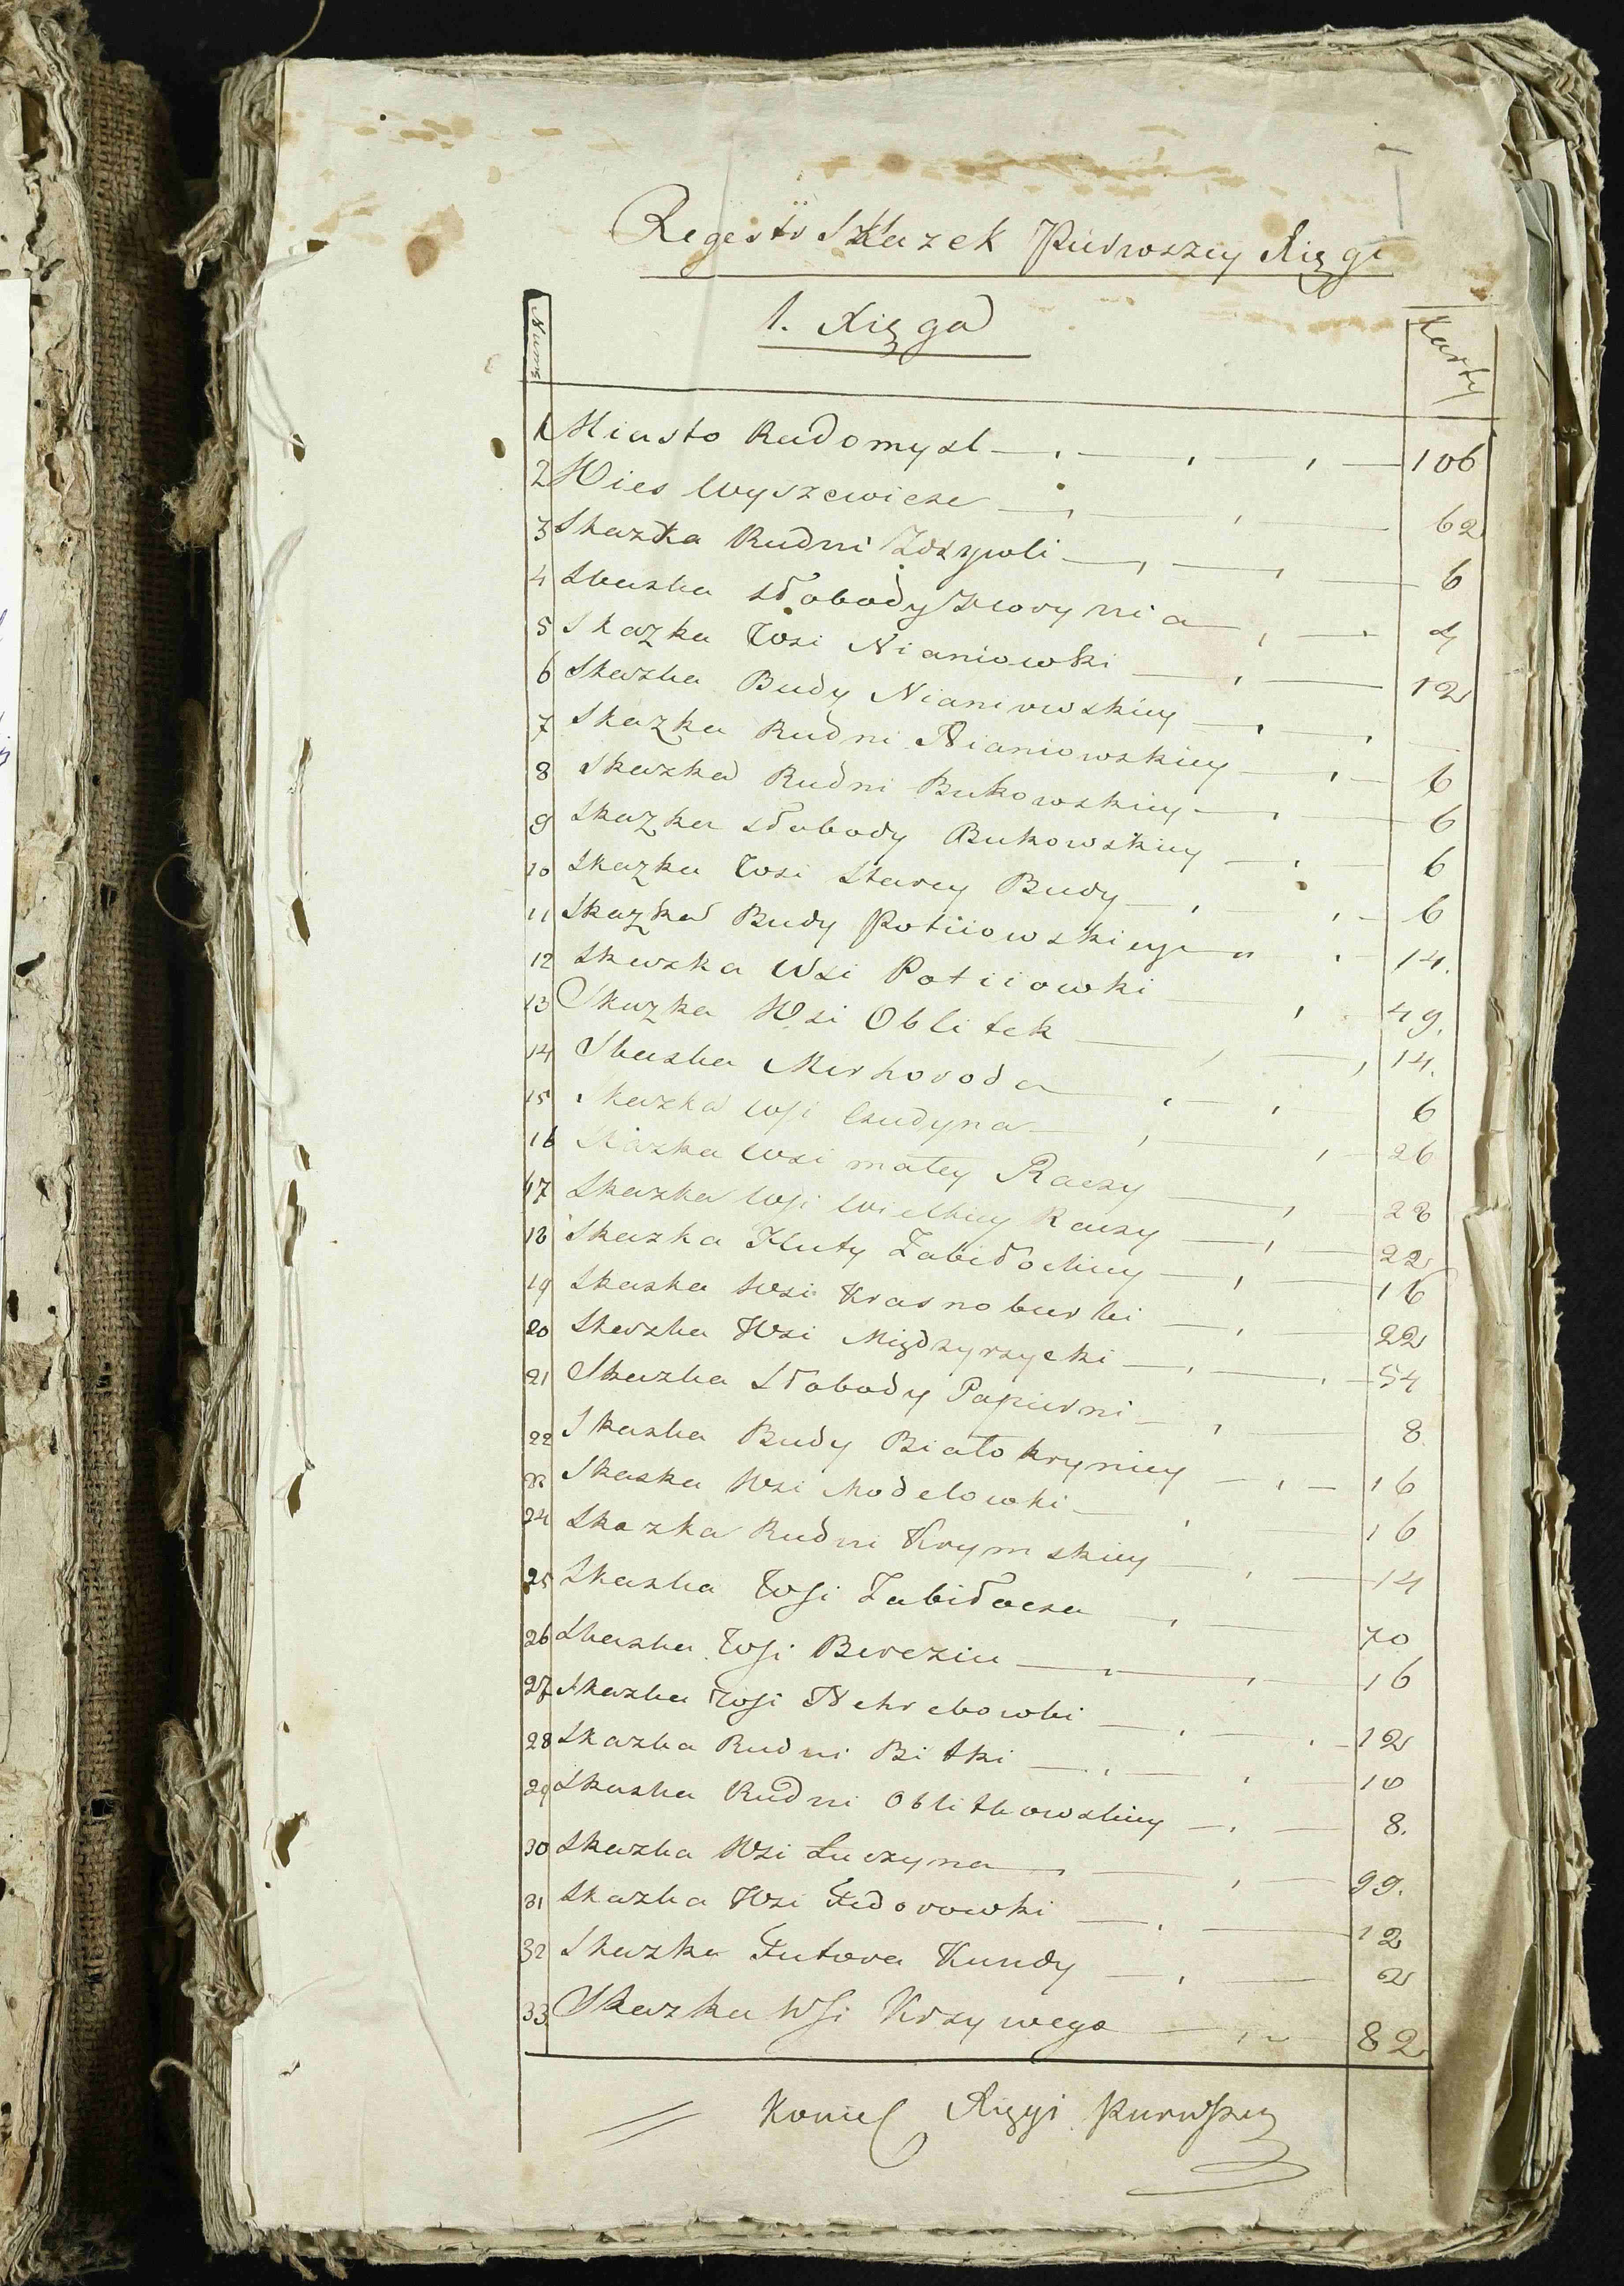 Regestr Skazek Pierwszey Xięgi
1. Xięga
Num Karty
1 Miasto Radomysl 106
2 Wies Wyszewicze 62
3 Skazka Rudni Żdzywli 6
4 Skazka Słobody Worynia 4
5 Skazka Wsi Nianiowki 12
6 Skazka Budy Nianiowskiey —
7 Skazka Rudni Nianiowskiey 6
8 Skazka Rudni Bukowskiey 6
9 Skazka Słobody Bukowskiey 6
10 Skazka Wsi Starey Budy 6
11 Skazka Budy Potiiowskiey 14.
12 Skazka Wsi Potiiowki 49.
13 Skazka Wsi Oblitek 14.
14 Skazka Mirhoroda 6
15 Skazka Wsi Czudyna 26
16 Skazka Wsi małey Raczy 28
17 Skazka Wsi Wielkiey Raczy 22
18 Skazka Huty Zabiłockiey 16
19 Skazka Wsi Krasnoburki 22
20 Skazka Wsi Międzyrzyczki 54
21 Skazka Słobody Papierni 8
22 Skazka Budy Białokrynicy 16
23 Skazka Wsi Modelowki 16
24 Skazka Rudni Krymskiey 14
25 Skazka Wsi Zabiłocza 70
26 Skazka Wsi Berezic 16
27 Skazka Wsi Nehrebowki 12
28 Skazka Rudni Bitki 10
29 Skazka Rudni Oblitkowskiey 8.
30 Skazka Wsi Łuczyna 99.
31 Skazka Wsi Fedorowki 12
32 Skazka Futora Kundy 2
33 Skazka Wsi Krzywego 82
Koniec Xięgi Pierwszey